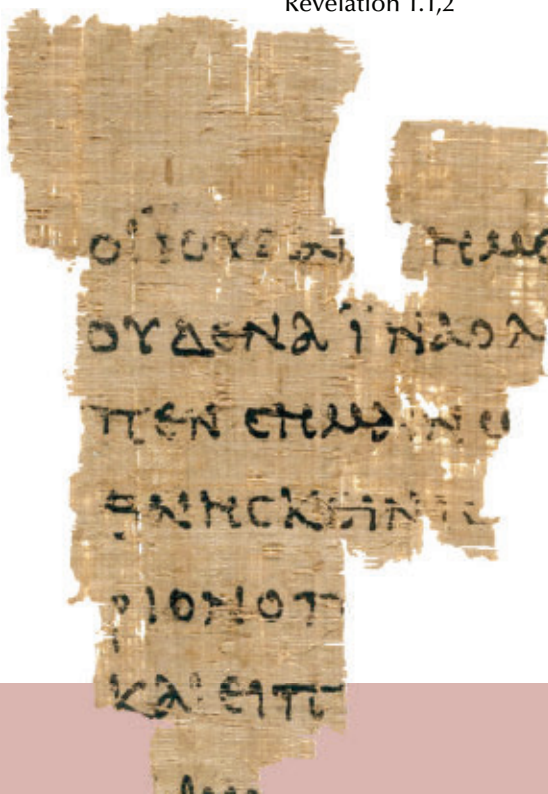 Revelation 1.1,2
ΟΙ ΙΟΥΔΑΙ ΗΜΕ
ΟΥΔΕΝΑ ΪΝΑ Ο Λ
ΠΕΝ CΗΜΑΙΝΩ
ΘΝΗCΚΕΙΝ ΙC
ΡΙΟΝ Ο Π
ΚΑΙ ΕΙΠ